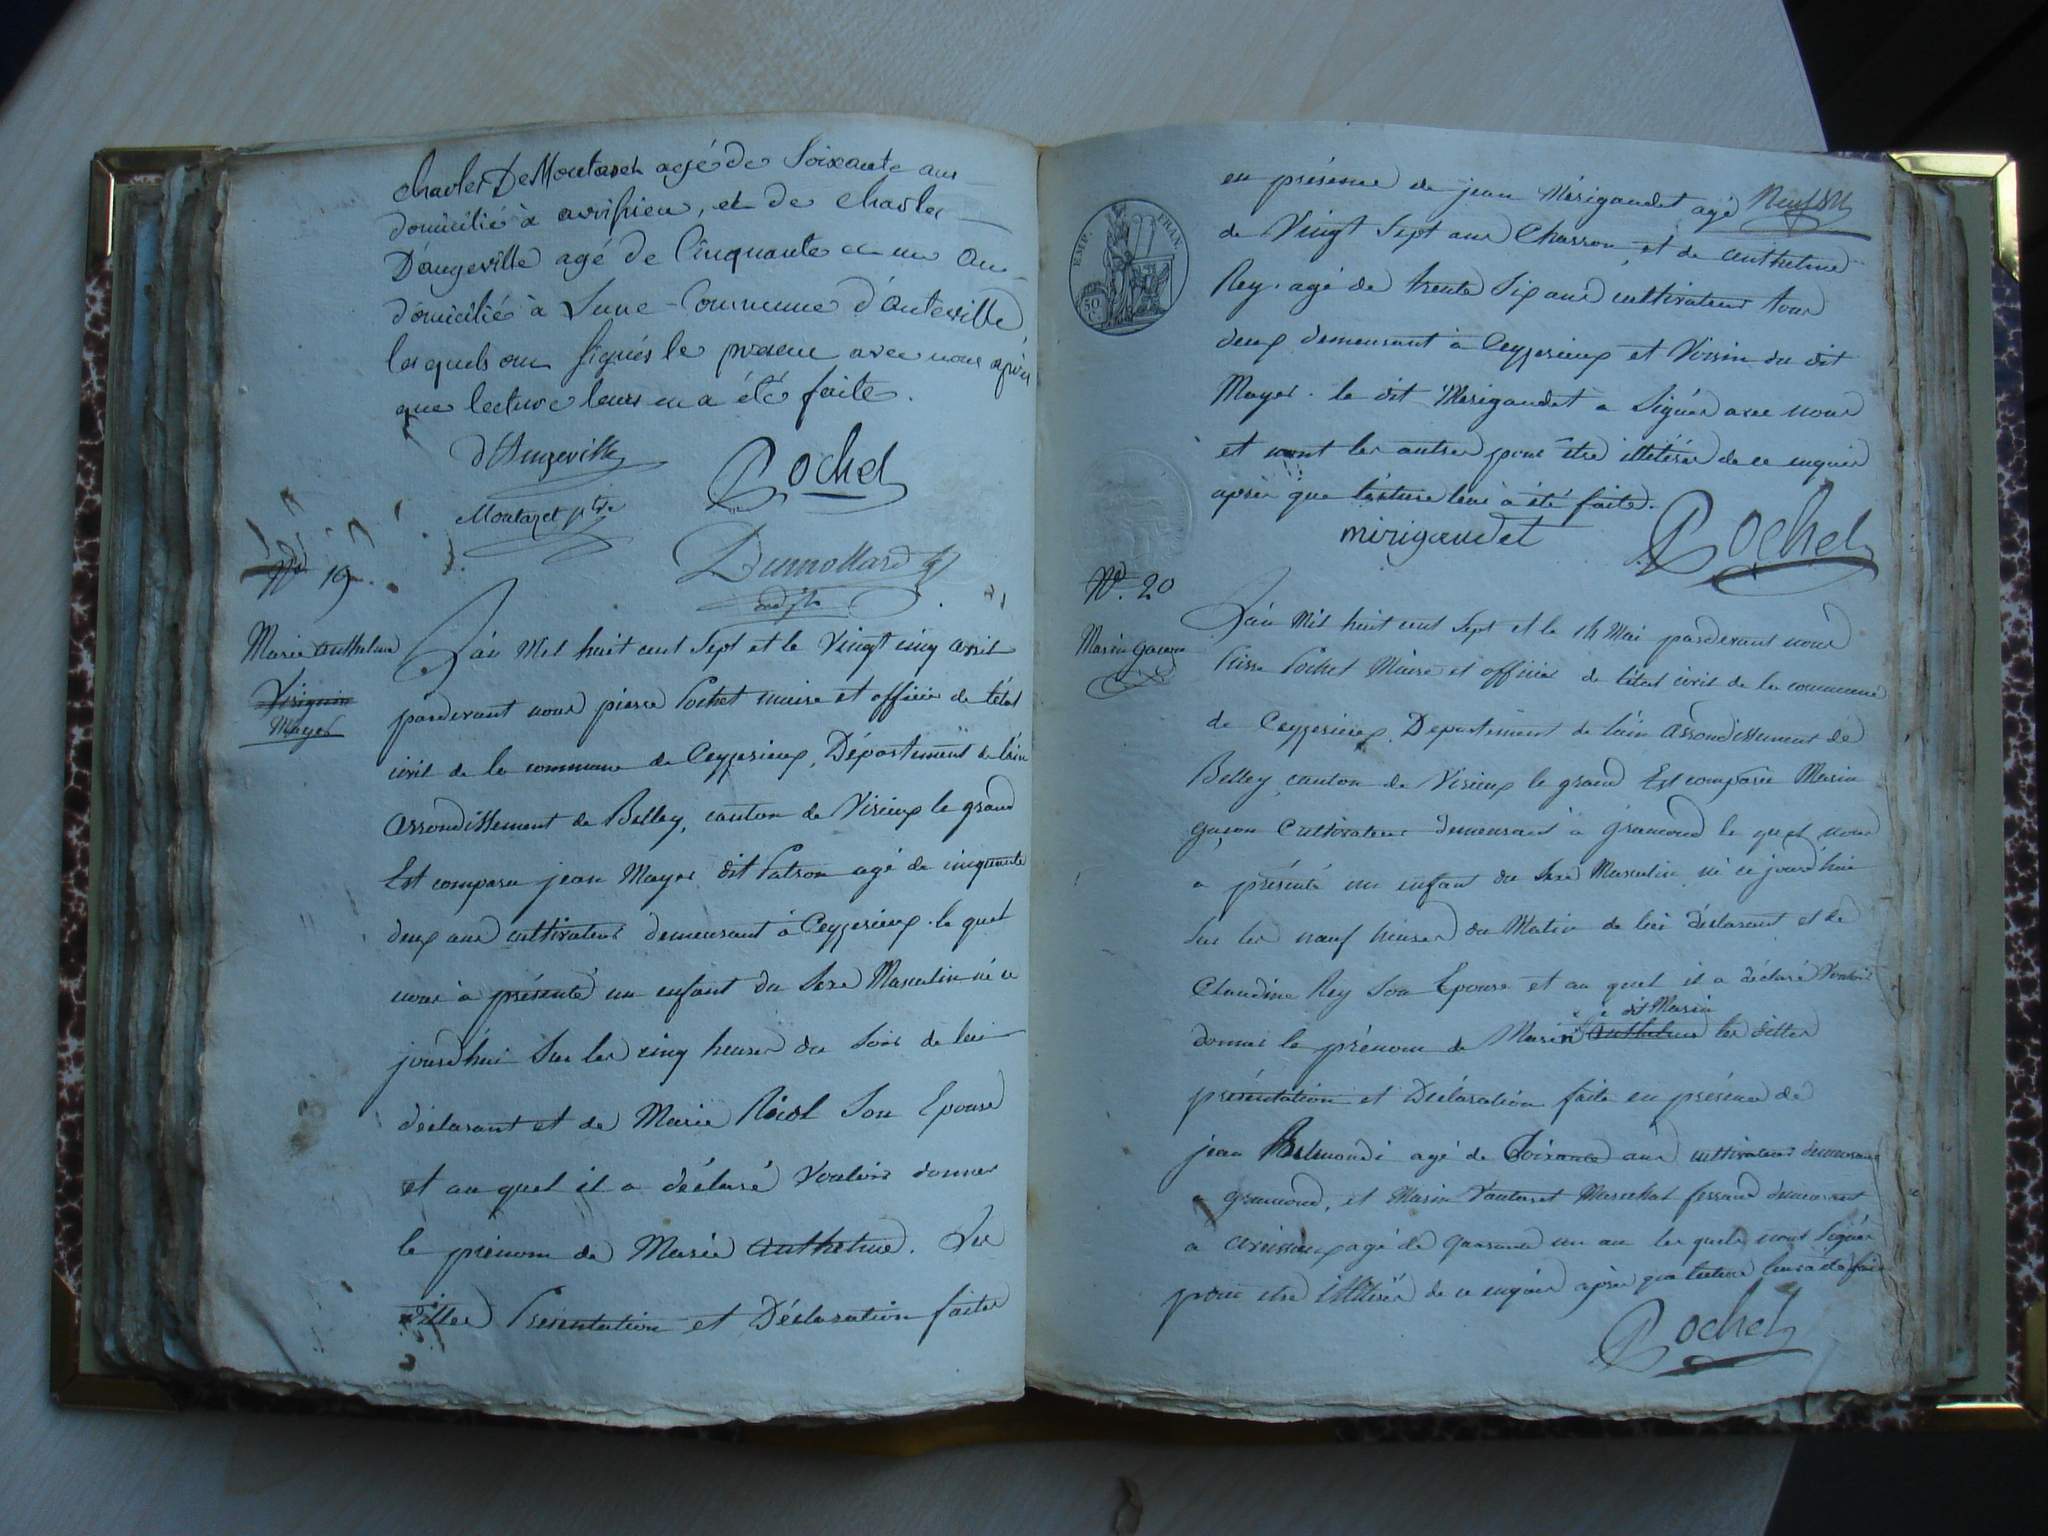 charles De Moutazet agé de Soixante ans
domicilié à avrissieu, et de charles
D'angeville agé de Cinquante et un an
domicilié à Lune Commune d'hauteville
lesquels ont Signés le present avec nous après
que lecture leurs en a été faite.
d'Angeville
Pochet
Moutazet ptre
Dumollard
No 19
Marie anthelme
Virignin
Mayet
L'an Mil huit cent Sept et le Vingt cinq avril
pardevant nous pierre Pochet maire et officier de l'état
civil de la commune de Ceyzerieux, Département de l'ain
arrondissement de Belley, canton de Virieux le grand
Est comparu jean Mayet dit Patron agé de cinquante
deux ans cultivateur demeurant à Ceyzerieux le quel
nous à présenté un enfant du Sexe Masculin né ce
jourd'hui Sur les cinq heures du Soir de lui
déclarant et de Marie Son Epouse
et au quel il a déclaré Vouloir donner
le prénom de Marie anthelme. Les
dittes Présentation et Déclaration faites
EMP. FRAN.
50 C
en présence de jean Mérigaudet agé
de Vingt Sept ans Charron, et de anthelme
Rey. agé de trente Six ans cultivateur tous
deux demeurant à Ceyzerieux et Voisin du dit
Mayet. le dit Mérigaudet a Signé avec nous
et nont les autres pour être illétérés de ce enquis
après que lecture leur à été faite.
mirigaudet
Pochet
No. 20
Marin gacon
L'an Mil huit cent Sept et le 14 Mai pardevant nous
Pierre Pochet Maire et officier de l'état civil de la commune
de Ceyzerieux, Departement de l'ain arrondissement de
Belley, canton de Virieux le grand Est comparu Marin
gacon Cultivateur demeurant à gramond le quel nous
a présenté un enfant du Sexe Masculin né ce jourd'hui
Sur les neuf heures du Matin de lui déclarant et de
Claudine Rey Son Epouse et au quel il a déclaré Vouloir
dit Marin
donner le prénom de Marin anthelme les dittes
présentation et Déclaration faite en présence de
jean agé de Soixante ans cultivateur demeurant
a gramond, et Marin Marechal ferrand demeurant
a avrissieux agé de quarante un an les quels nont Signés
pour etre illétérés de ce enquis après que lecture leurs a été faite
Pochet